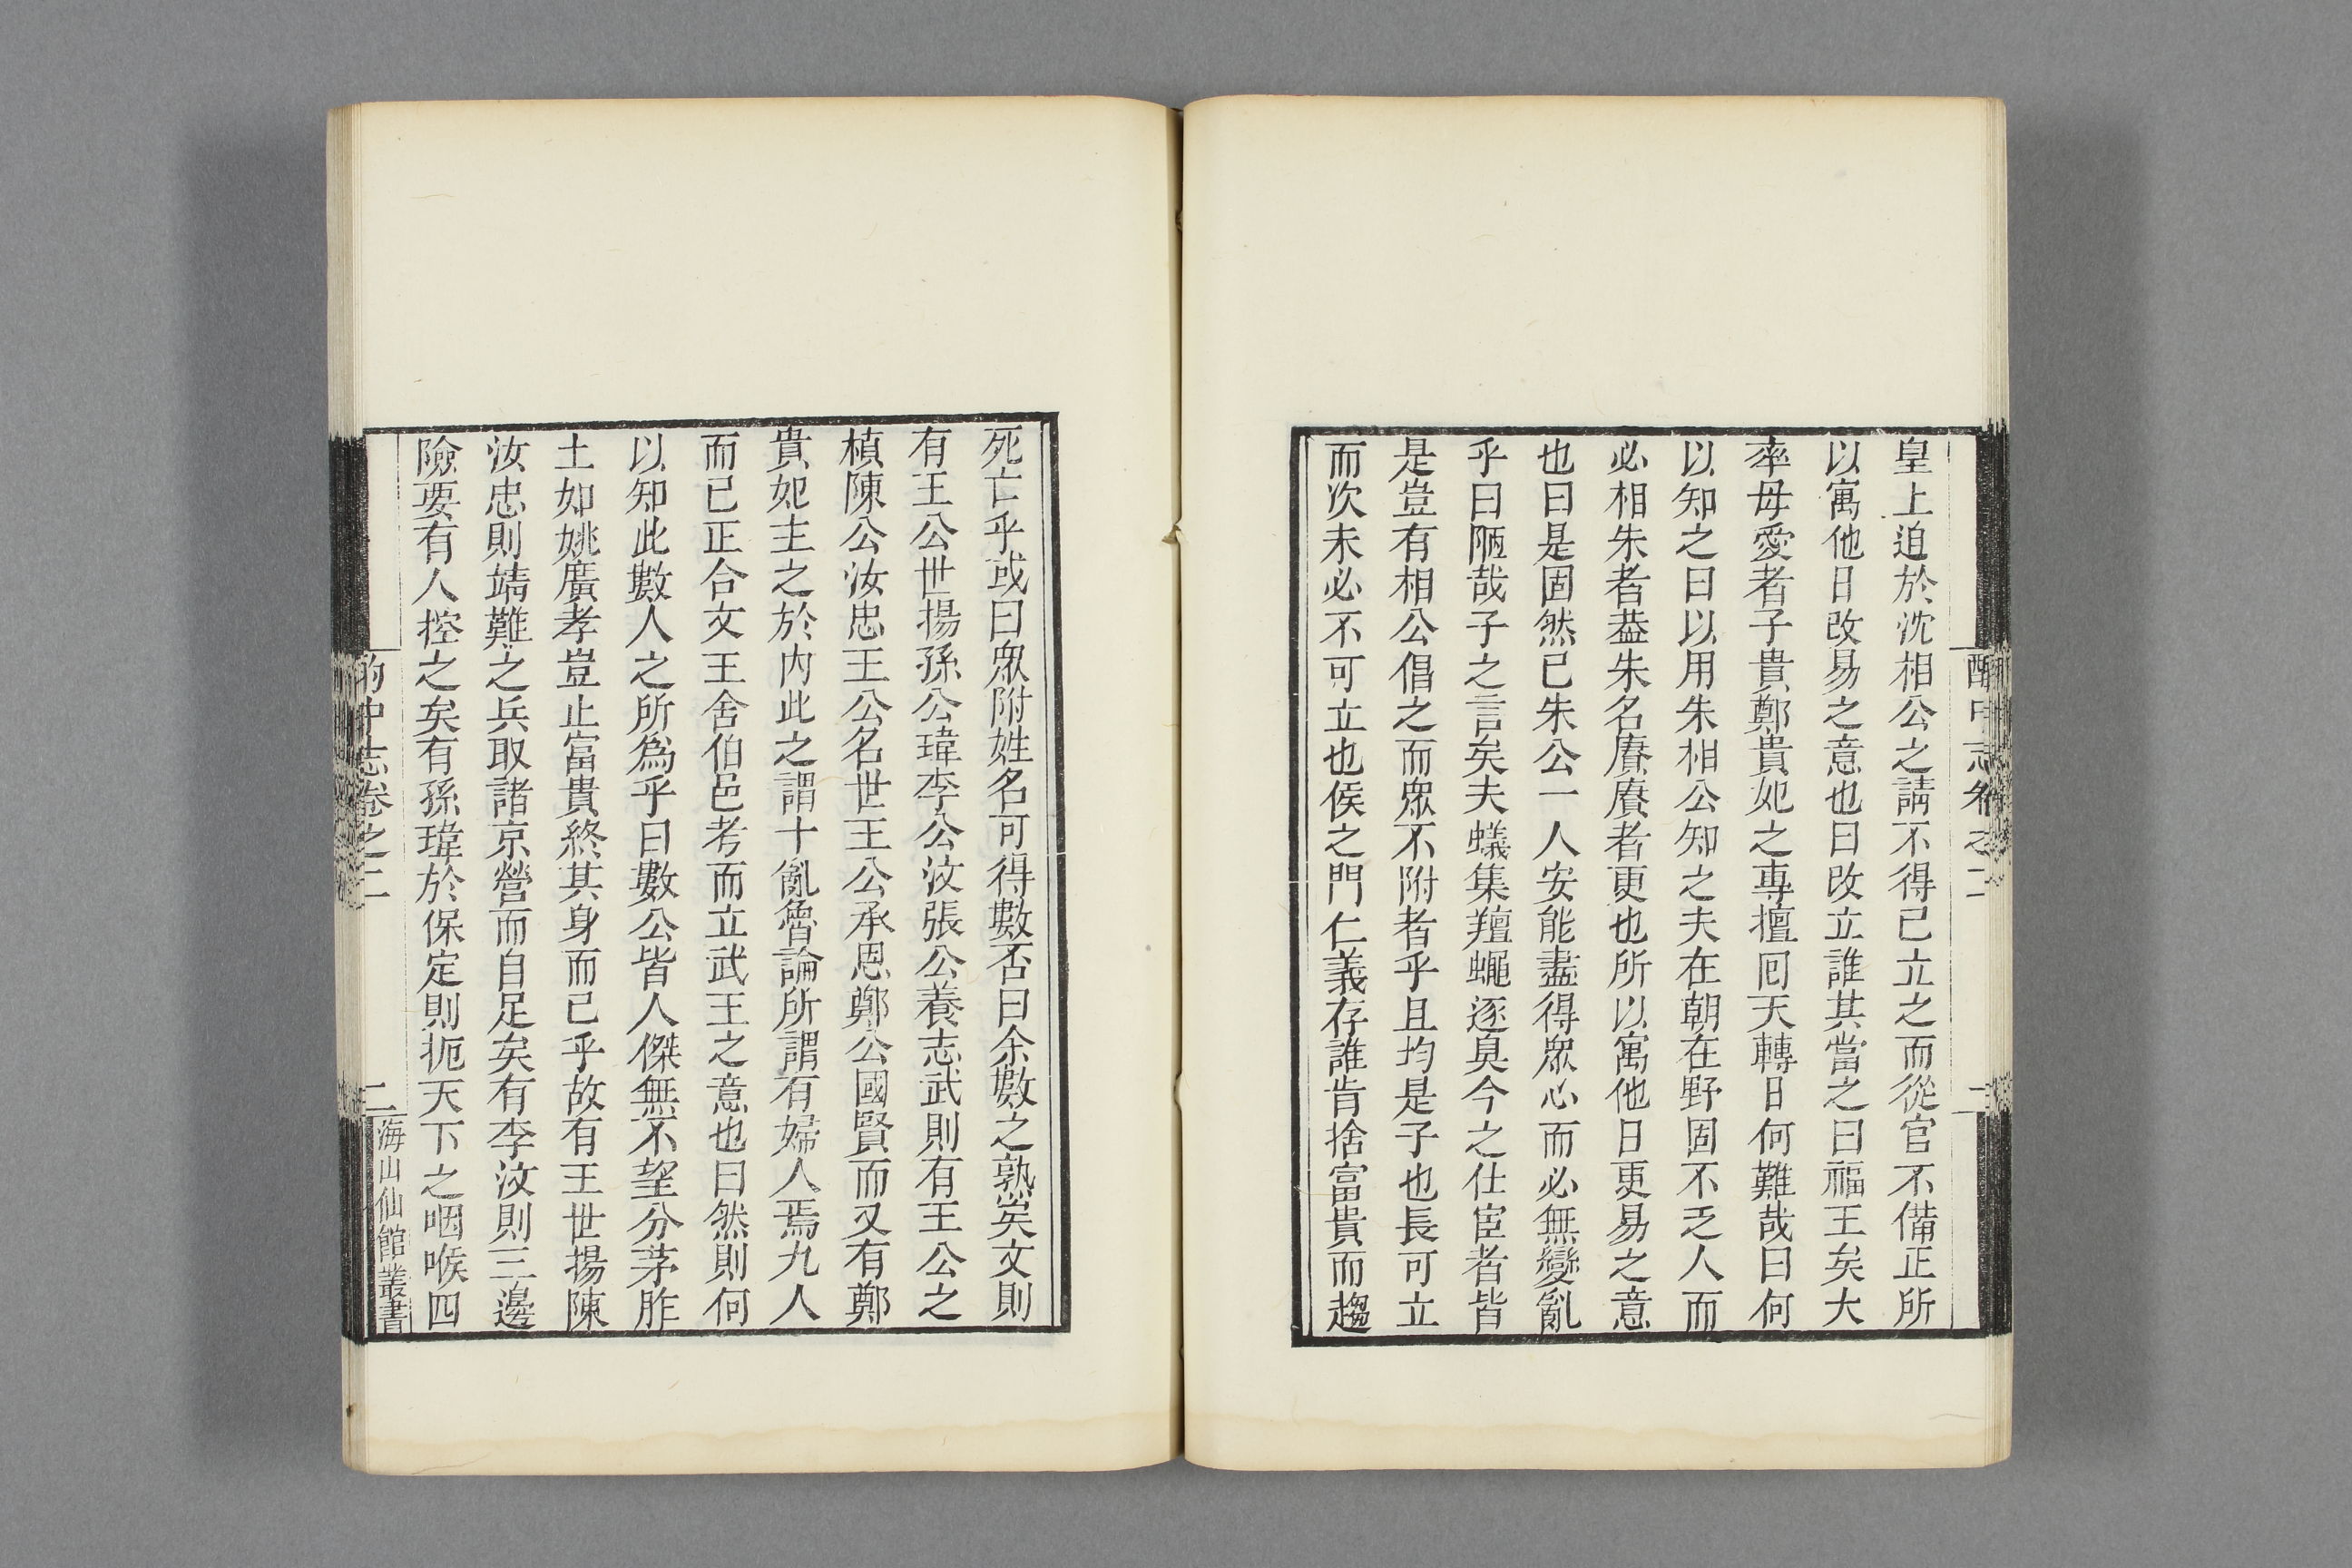 皇上迫於沈相公之請不得已立之而從官不備正所
以寓他日改易之意也曰改立誰其當之曰福王矣大
率母愛者子貴鄭貴妃之專擅囘天轉日何難哉曰何
以知之曰以用朱相公知之夫在朝在野固不乏人而
必相朱者葢朱名賡賡者更也所以寓他日更易之意
也曰是固然已朱公一人安能盡得眾心而必無變亂
乎曰陋哉子之言矣夫蟻集羶蠅逐臭今之仕宦者皆
是豈有相公倡之而眾不附者乎且均是子也長可立
而次未必不可立也侯之門仁義存誰肯捨富貴而趨
死亡乎或曰眾附姓名可得數否曰余數之孰矣文則
有王公世揚孫公瑋李公汶張公養志武則有王公之
楨陳公汝忠王公名世王公承恩鄭公國賢而又有鄭
貴妃主之於內此之謂十亂魯論所謂有婦人焉九人
而已正合文王舍伯邑考而立武王之意也曰然則何
以知此數人之所為乎曰數公皆人傑無不望分茅胙
土如姚廣孝豈止富貴終其身而已乎故有王世揚陳
汝忠則靖難之兵取諸京營而自足矣有李汶則三邊
險要有人控之矣有孫瑋於保定則扼天下之咽喉四
酌中志卷之二
二
海山仙館叢書